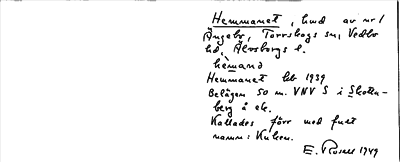 Hemmanet, hmd av nr 1
Ängebo, Torrskogs sn, Vedbo
hd, Älvsborgs l.
hèmanə
Hemmanet bb 1939
Belägen 50 m. VNV S i Skotten-
berg å ek.
Kallades förr med fullt
namn: Kuken.
E. Rosell 1949